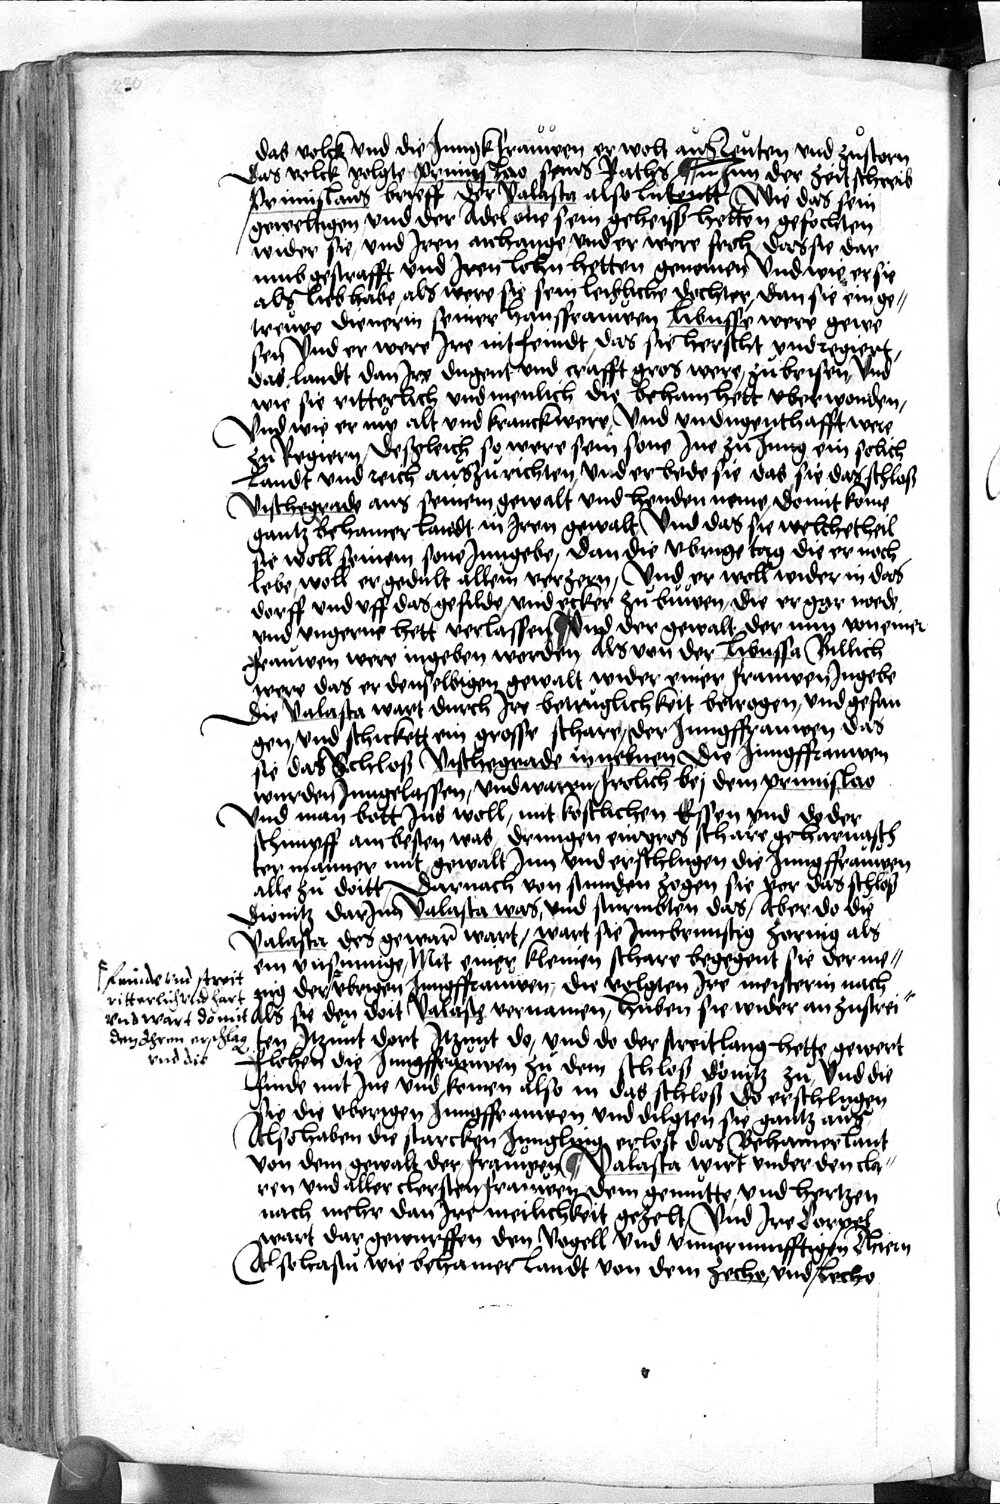 das volck vnd die Jungkfrauwen er wolt auß Reuten vnd zustorn
Das volck volgte Primislao seins Raths Zu Inn der zeit schreib
Primislaus brieff Der Valasta also lutentt Wie das sein
geweltigen vnd der Adel one sein geheissz hetten gefochten
wider sie, vnd Iren anhange vnd er were froh das sie dar
vmb gestrafft vnd Iren lohn hetten genomen Vnd wie er sie
als lieb habe, als were sie sein leibliche dochter, Dan sie ein ge-
treuwe dienerin seiner hausfrauwen Libusse were gewe
sen Vnd er were Ire nit feindt, das sie herscht vnd regiert,
das landt dan Ire dugent vnd crafft gros were, zu breisen, Vnd
wie sie ritterlich vnd menlich die beham hett vberwonden,
Vnd wie er nuͦ alt vnd kranck were, Vnd vndugenthafft were
zu Regiern, Desgleich so were sein sone Ine zu Jung ein solich
Landt vnd reich auszurichten, vnd er bede sie das sie das schloß
Vischegrade aus seinem gewalt vnd henden neme, domit kome
gantz behamer landt in Iren gewalt Vnd das sie welche theil
sie woll seinem sone Inngebe, dan die vbrige tag die er noch
lebe woll er gedult allein verzern, Vnd er woll wider in das
dorff vnd vff das gefilde, vnd ecker zu buwen, die er gar node
vnd vngerne hett verlassen Vnd der gewalt der nun von einer
frauwen were ingeben worden Als von der Libussa Billich
were das er denselbigen gewalt wider einer frauwen Ingebe
Die Valasta wart durch Ire betruglichkeit betrogen, vnd gefan
gen, vnd schickett ein grosse schare, der Jungffrauwen das
sie das Schloß Vischegrade innemen Die Jungffrauwen
wurden Inngelassen, vnd waren frolich bej dem primislao
Vnd man bott Ins woll, mit kostlichen Essen vnd do der
schimpff am besten was, drungen ein gros schare geharnasch
ter manner mit gewalt Inn vnd erschlugen die Jungffrauwen
alle zu doitt Darnach von stunden zogen sie vor das schlos
Dionitz dar Inn Valasta was, vnd sturmbten das, Aber do die
Valasta des gewar wart, wart sie Innbrunstig zornig als
ein vnsinnige, Mit einer kleinen schare begegent sie der me-
nig der vbrigen Jungffrauwen, die volgten Ire meisterin nach
Als sie den doit Valaste vernamen, huben sie wider an zustrei-
ten Itzunt dort Itzunt do, vnd do der streit lang hette gewert
flohen die Jungffrauwen zu dem schlos Donitz zu Vnd die
finde mit Ine vnd komen also in das schloß Do erschlugen
sie die vberigen Jungffrauwen vnd dilgten sie gantz aus
Also haben die starcken Jungling erlost das Behamer lant
von dem gewalt der frauwen Valasta wirt vnder den cla-
ren vnd aller clersten frauwen dem gemutte, vnd hertzen
nach mehr dan Ire meilichkeit gezelt, Vnd Ire Corpel
wart dar geworffen den Vogell vnd vnuernunfftigen thiern
Also hastu wie behamer landt von dem Zecho, vnd Lecho
feinde vnd streit
ritterlich vnd hart
vnd wart do mit
den Ihren erschlag
vnd die